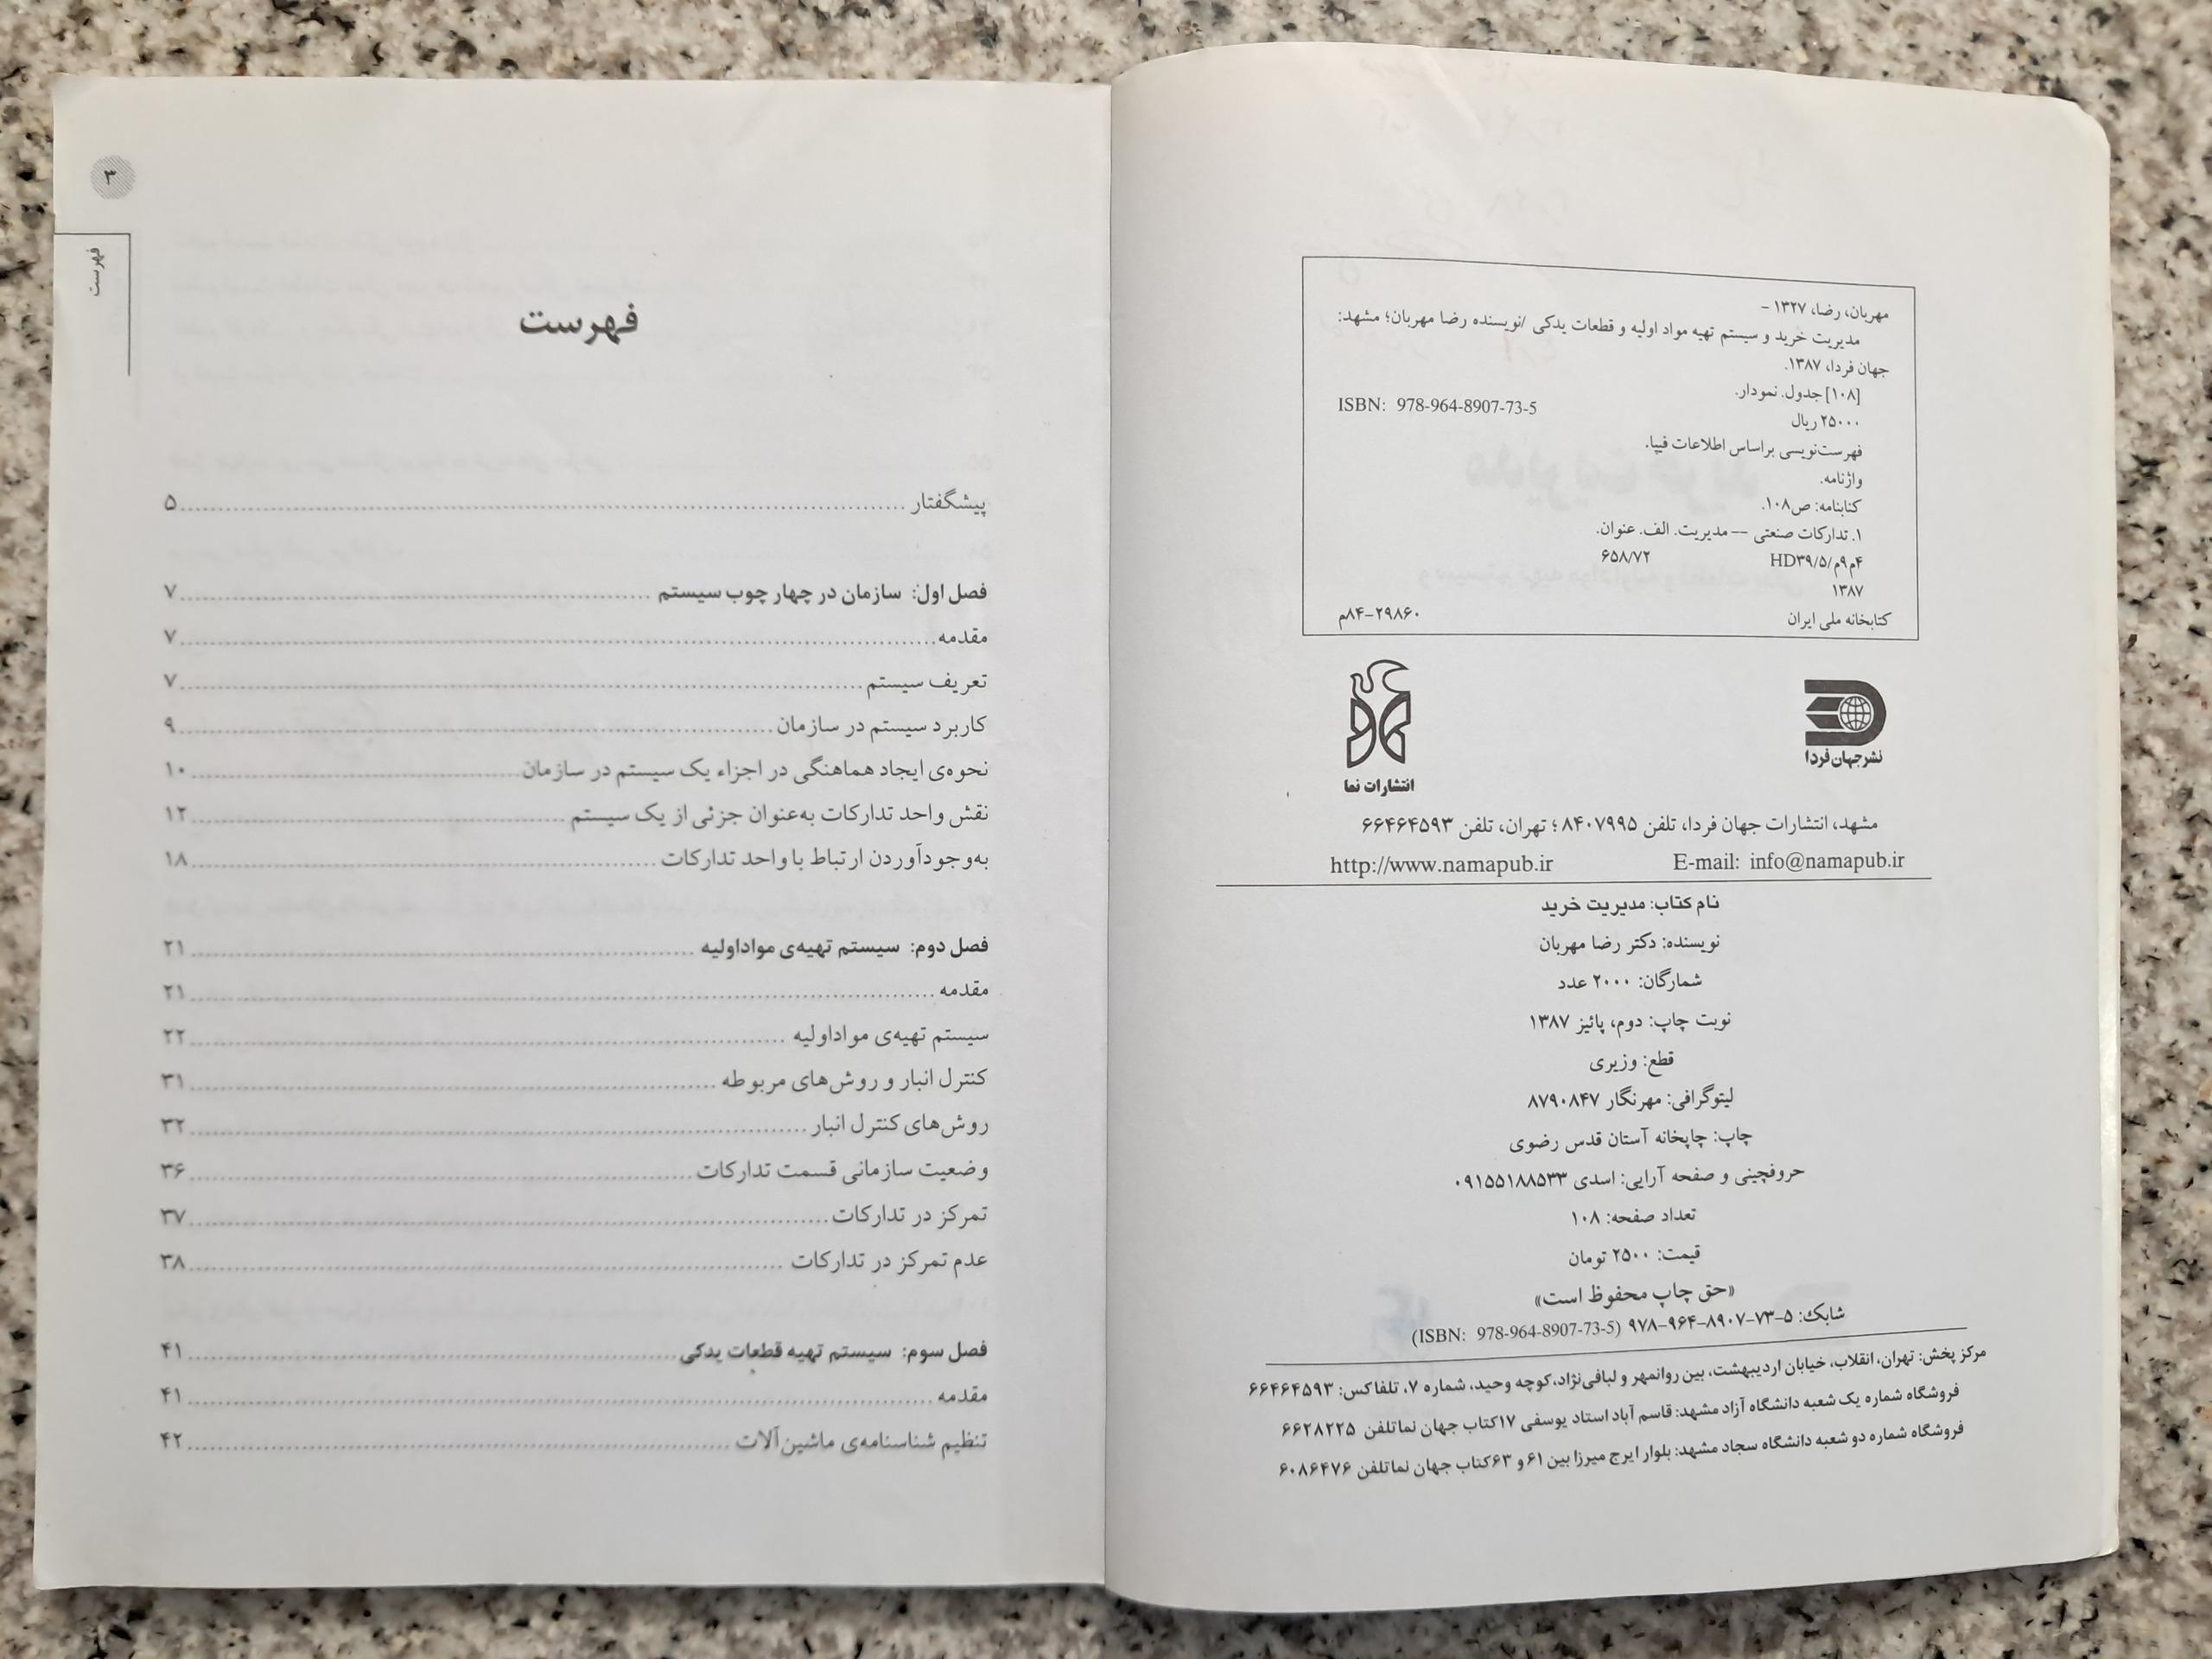 مهربان، رضا، ۱۳۲۷ –
مدیریت خرید و سیستم تهیه مواد اولیه و قطعات یدکی /نویسنده رضا مهربان؛ مشهد:
جهان فردا، ۱۳۸۷.
[۱۰۸] جدول. نمودار.
ISBN: 978-964-8907-73-5
۲۵۰۰۰ ریال
فهرست‌نویسی براساس اطلاعات فیپا.
واژنامه.
کتابنامه: ص۱۰۸.
۱. تدارکات صنعتی –– مدیریت. الف. عنوان.
۴م۹م/HD۳۹/۵ ۶۵۸/۷۲
۱۳۸۷
کتابخانه ملی ایران ۸۴-۲۹۸۶۰م
نشر جهان فردا
انتشارات نما
مشهد، انتشارات جهان فردا، تلفن ۸۴۰۷۹۹۵ ؛ تهران، تلفن ۶۶۴۶۴۵۹۳
http://www.namapub.ir E-mail: info@namapub.ir
نام کتاب: مدیریت خرید
نویسنده: دکتر رضا مهربان
شمارگان: ۲۰۰۰ عدد
نوبت چاپ: دوم، پائیز ۱۳۸۷
قطع: وزیری
لیتوگرافی: مهرنگار ۸۷۹۰۸۴۷
چاپ: چاپخانه آستان قدس رضوی
حروفچینی و صفحه آرایی: اسدی ۰۹۱۵۵۱۸۸۵۳۳
تعداد صفحه: ۱۰۸
قیمت: ۲۵۰۰ تومان
«حق چاپ محفوظ است»
شابک: ۵–۷۳–۸۹۰۷–۹۶۴–۹۷۸ (ISBN: 978-964-8907-73-5)
مرکز پخش: تهران، انقلاب، خیابان اردیبهشت، بین روانمهر و لبافی‌نژاد،کوچه وحید، شماره ۷، تلفاکس: ۶۶۴۶۴۵۹۳
فروشگاه شماره یک شعبه دانشگاه آزاد مشهد: قاسم آباد استاد یوسفی ۱۷کتاب جهان نماتلفن ۶۶۲۸۲۲۵
فروشگاه شماره دو شعبه دانشگاه سجاد مشهد: بلوار ایرج میرزا بین ۶۱ و ۶۳کتاب جهان نماتلفن ۶۰۸۶۴۷۶
۳
فهرست
فهرست
پیشگفتار ........ ۵
فصل اول: سازمان در چهار چوب سیستم ........ ۷
مقدمه ........ ۷
تعریف سیستم ........ ۷
کاربرد سیستم در سازمان ........ ۹
نحوه‌ی ایجاد هماهنگی در اجزاء یک سیستم در سازمان ........ ۱۰
نقش واحد تدارکات به‌عنوان جزئی از یک سیستم ........ ۱۲
به‌وجودآوردن ارتباط با واحد تدارکات ........ ۱۸
فصل دوم: سیستم تهیه‌ی مواداولیه ........ ۲۱
مقدمه ........ ۲۱
سیستم تهیه‌ی مواداولیه ........ ۲۲
کنترل انبار و روش‌های مربوطه ........ ۳۱
روش‌های کنترل انبار ........ ۳۲
وضعیت سازمانی قسمت تدارکات ........ ۳۶
تمرکز در تدارکات ........ ۳۷
عدم تمرکز در تدارکات ........ ۳۸
فصل سوم: سیستم تهیه قطعات یدکی ........ ۴۱
مقدمه ........ ۴۱
تنظیم شناسنامه‌ی ماشین‌آلات ........ ۴۲